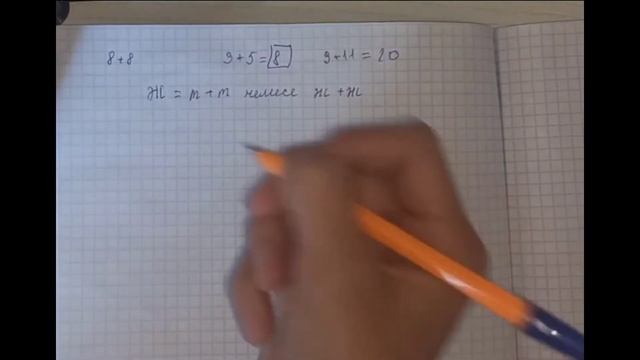 8+8 3+5=8 9+11=20
Ж = т + т немесе ж + ж